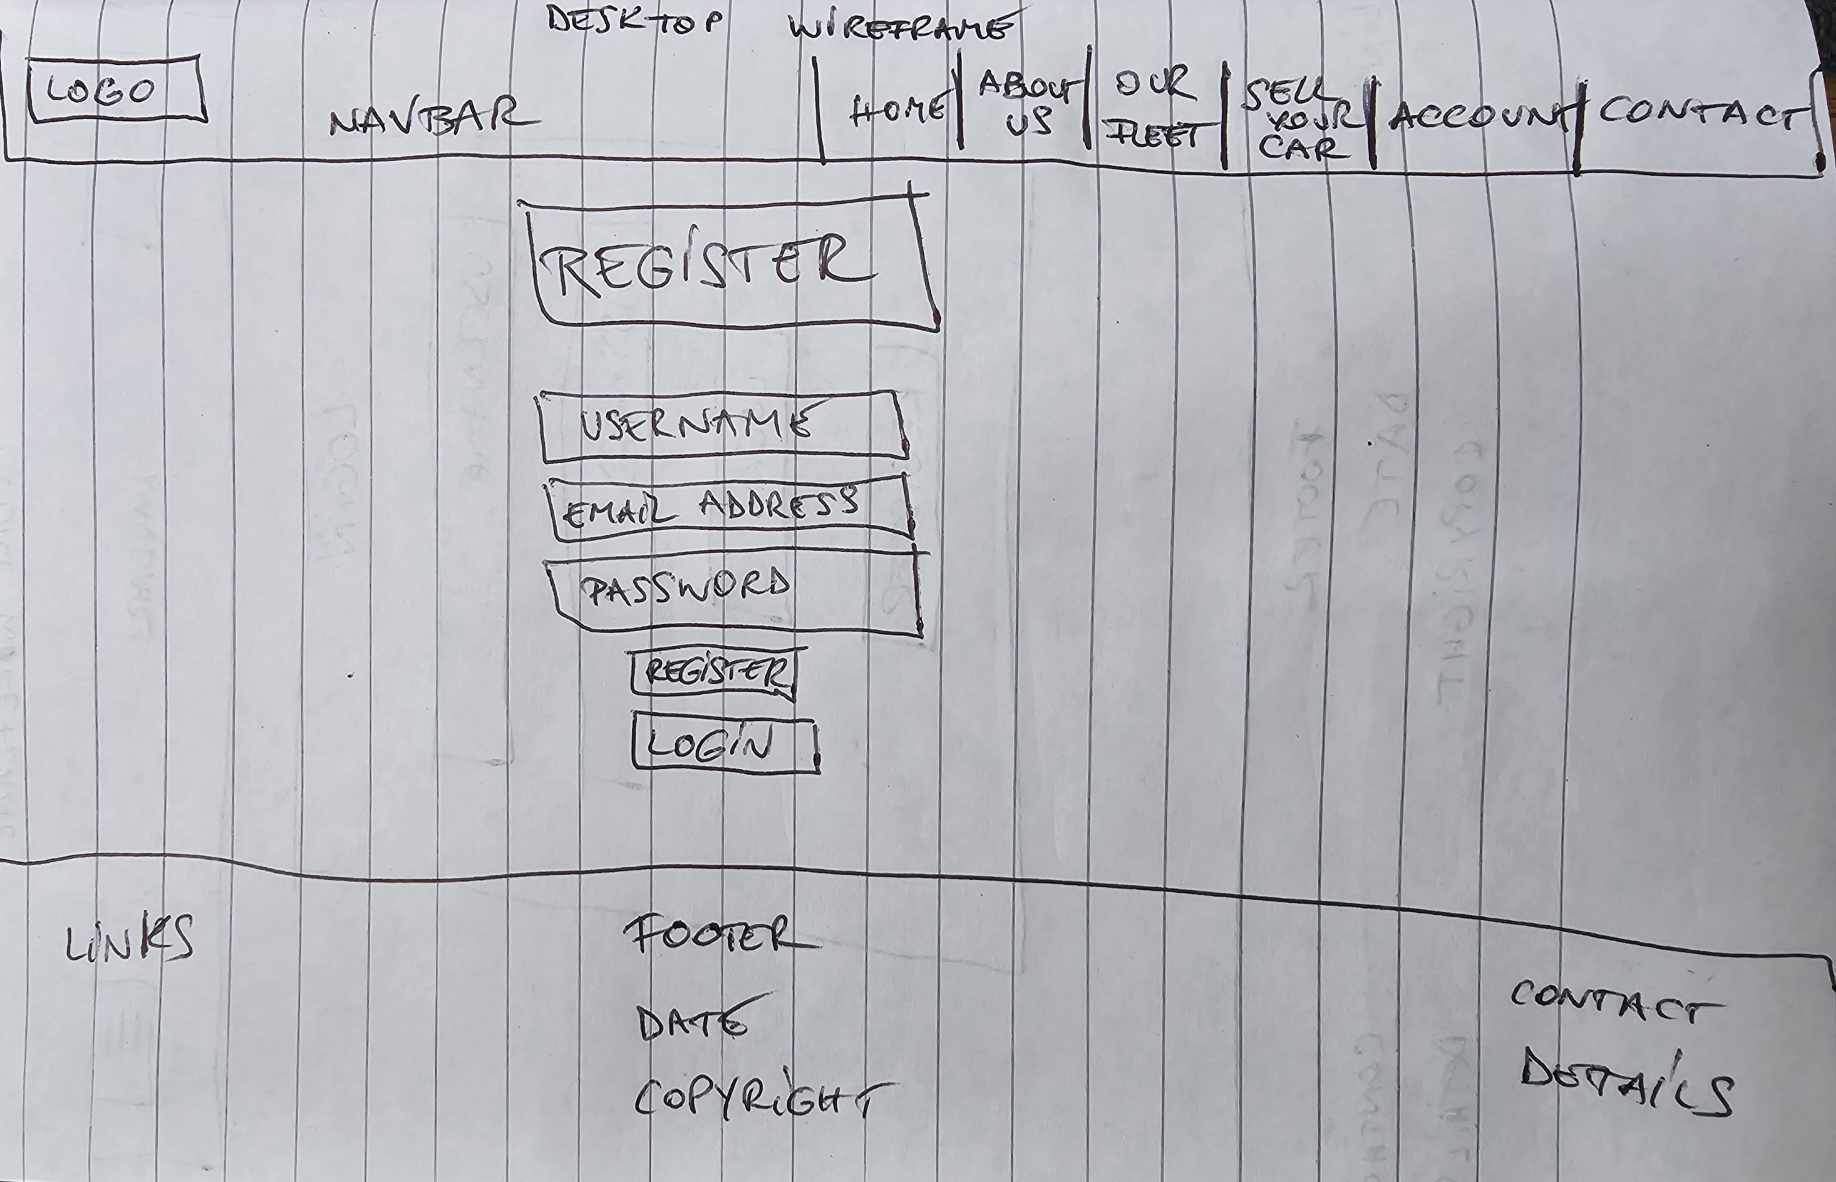 DESKTOP WIREFRAME
LOGO
NAVBAR
HOME
ABOUT
US
OUR
FLEET
SELL
YOUR
CAR
ACCOUNT
CONTACT
REGISTER
USERNAME
EMAIL ADDRESS
PASSWORD
REGISTER
LOGIN
LINKS
FOOTER
DATE
COPYRIGHT
CONTACT
DETAILS